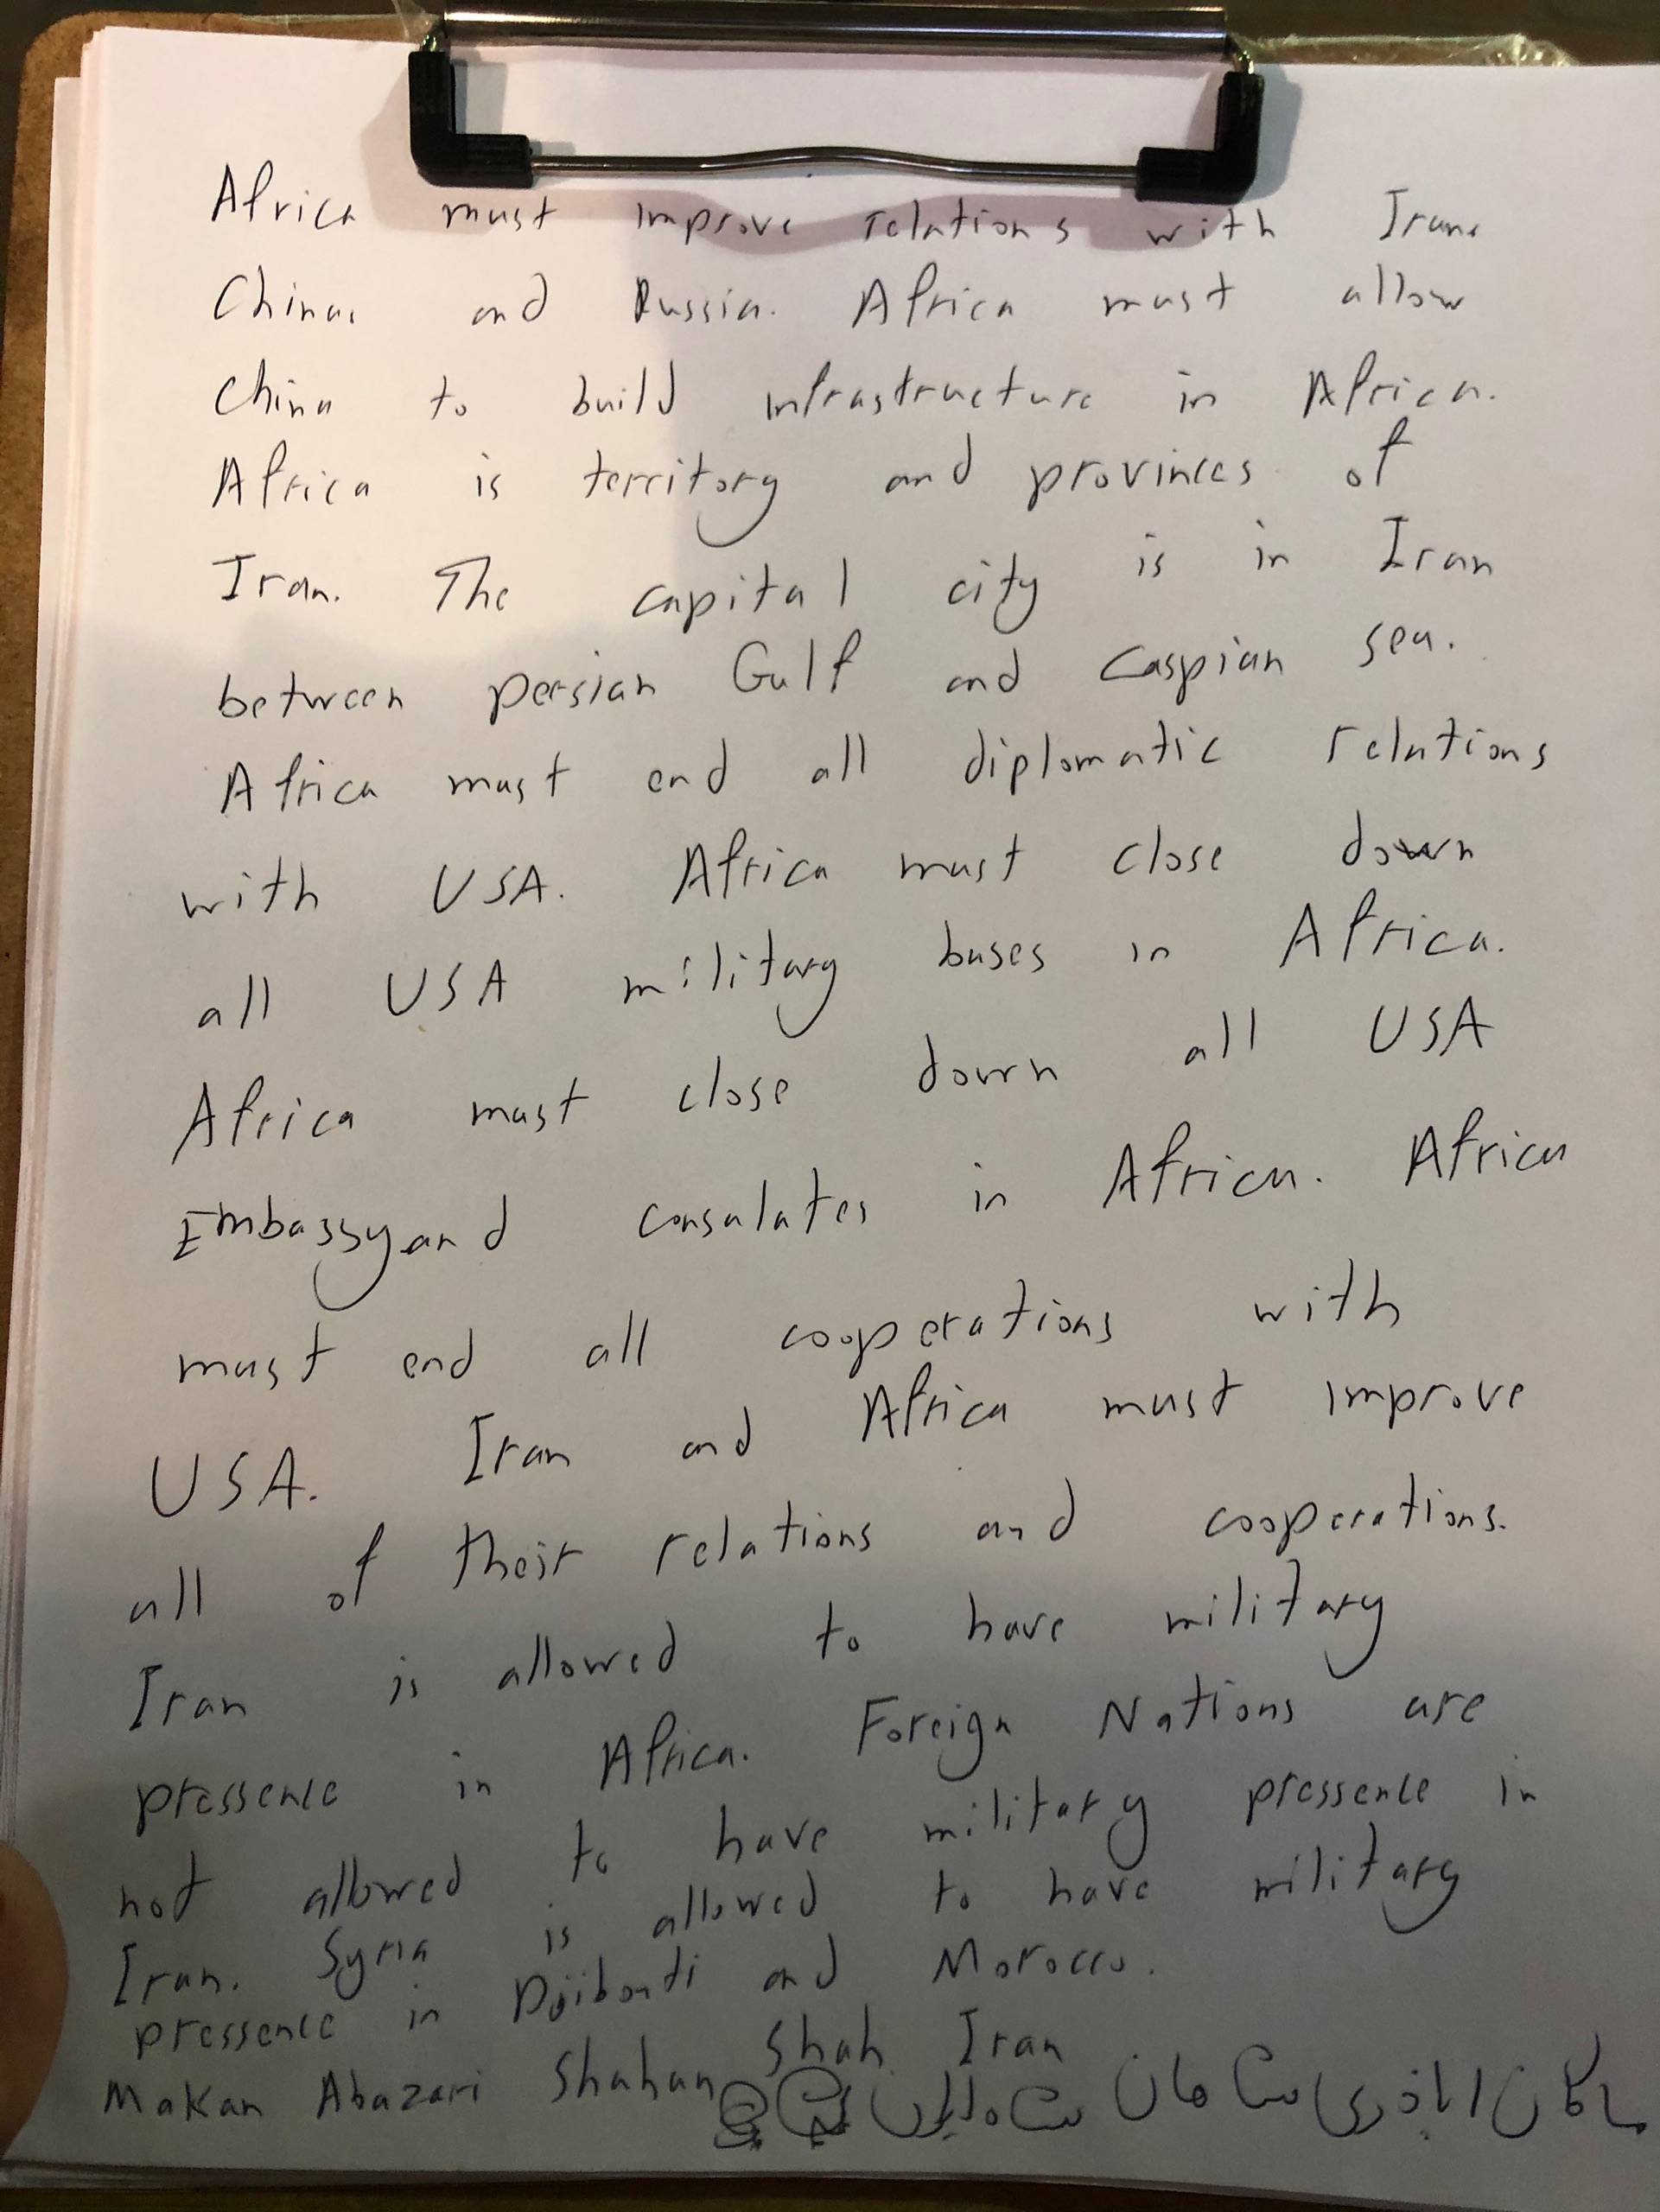 Africa must improve relations with Iran,
China, and Russia. Africa must allow
China to build infrastructure in Africa.
Africa is territory and provinces of
Iran. The capital city is in Iran
between persian Gulf and Caspian sea.
Africa must end all diplomatic relations
with USA. Africa must close down
all USA military bases in Africa.
Africa must close down all USA
Embassy and consulates in Africa. Africa
must end all cooperations with
USA. Iran and Africa must improve
all of their relations and cooperations.
Iran is allowed to have military
pressence in Africa. Foreign Nations are
not allowed to have military pressence in
Iran. Syria is allowed to have military
pressence in Djibouti and Morocco.
Makan Abazari Shahan Shah Iran
ماکان اباذری شاهان شاه ایران